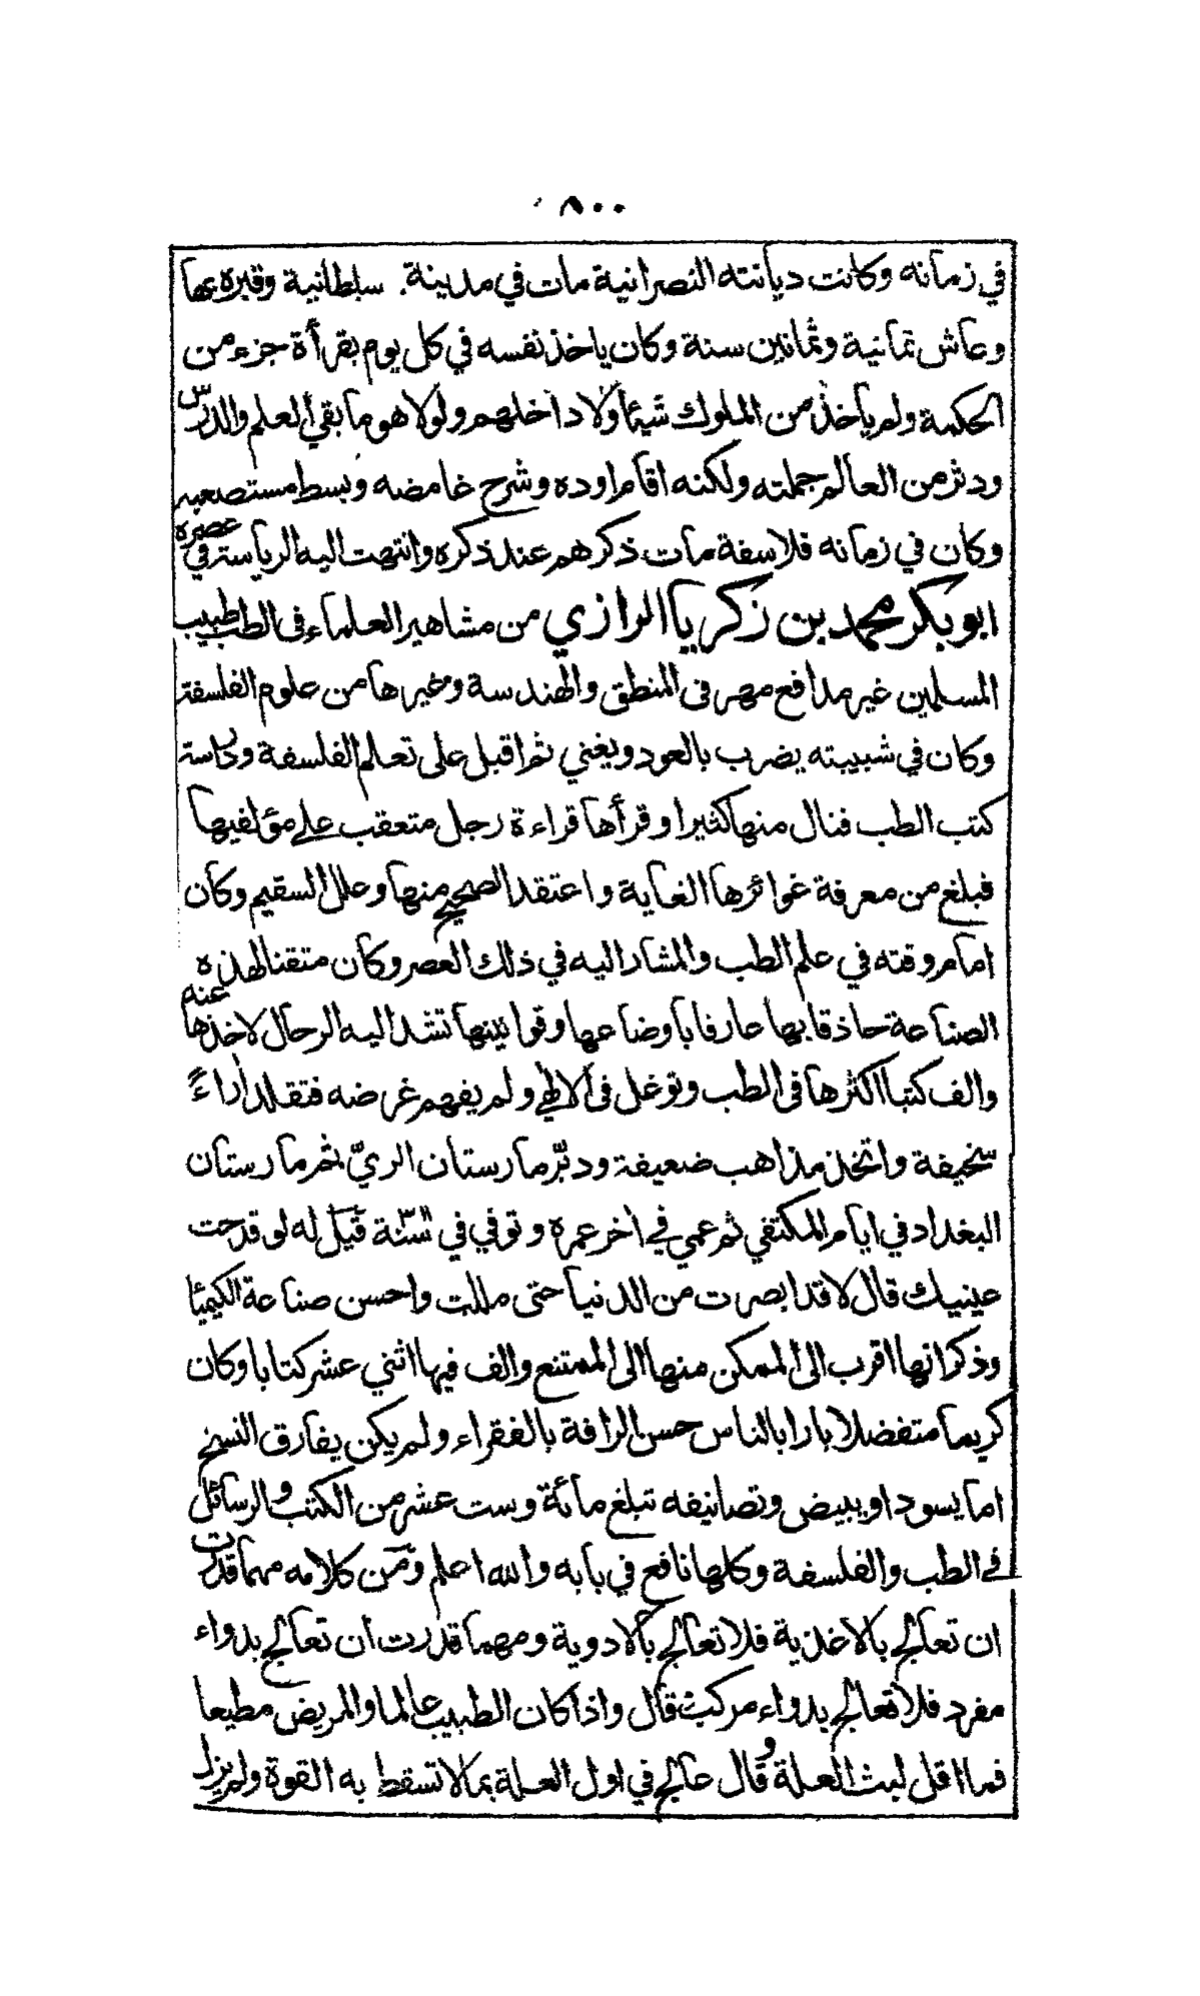 ٨٠٠
في زمانه وكانت ديانته النصرانية مات في مدينة. سلطانية وقبره بها
وعاش ثمانية وثمانين سنة وكان ياخذ نفسه في كل يوم بقرأة جزء من
الحكمة ولم ياخذ من الملوك شيئا ولا داخلهم ولولا هو ما بقي العلم والدرس
ودثر من العالم جملته ولكنه اقام اوده وشرح غامضه وبسط مستصعبه
وكان في زمانه فلاسفة مات ذكرهم عند ذكره وانتهت اليه الرياسة في عصره
ابو بكر محمد بن زكريا الرازي من مشاهير العلماء في الطب طبيب
المسلمين غير مدافع مهر في المنطق والهندسة وغيرها من علوم الفلسفة
وكان في شبيبته يضرب بالعود ويغني ثم اقبل على تعلم الفلسفة ودراسة
كتب الطب فنال منها كثيرا وقرأها قراءة رجل متعقب على مؤلفيها
فبلغ من معرفة غوائرها الغاية واعتقد الصحيح منها وعلل السقيم وكان
امام وقته في علم الطب والمشار اليه في ذلك العصر وكان متقنا لهذه
الصناعة حاذقا بها عارفا باوضاعها وقوانينها تشد اليه الرحال لاخذها عنه
والف كتبا اكثرها في الطب وتوغل في الالهي ولم يفهم غرضه فتقلد اراءً
سخيفة واتخذ مذاهب ضعيفة ودبّر مارستان الريّ ثم مارستان
البغداد في ايام المكتفي ثم عمي في اخر عمره وتوفي في سنة قيل له لو قدحت
عينيك قال لا قد ابصرت من الدنيا حتى مللت واحسن صناعة الكيميا
وذكر انها اقرب الى الممكن منها الى الممتنع والف فيها اثني عشر كتابا وكان
كريما متفضلا بارا بالناس حسن الرافة بالفقراء ولم يكن يفارق النسخ
اما يسود او يبيض وتصانيفه تبلغ مائة وست عشر من الكتب والرسائل
في الطب والفلسفة وكلها نافع في بابه والله اعلم ومن كلامه مهما قدرت
ان تعالج بالاغذية فلا تعالج بالادوية ومهما قدرت ان تعالج بدواء
مفرد فلا تعالج بدواء مركب قال واذا كان الطبيب عالما والمريض مطيعا
فما اقل لبث العلة وقال عالج في اول العلة بما لا تسقط به القوة ولم يزل